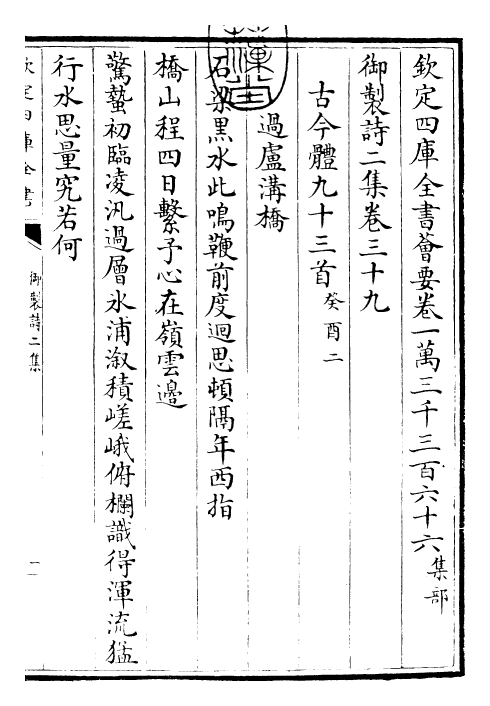 欽定四庫全書薈要卷一萬三千三百六十六 集部
御製詩二集卷三十九
古今體九十三首 癸酉二
過盧溝橋
石梁黒水此鳴鞭前度迴思頓隔年西指
橋山程四日繫予心在嶺雲邊
驚蟄初臨凌汛過層氷浦溆積嵯峨俯欄識得渾流猛
行水思量究若何
欽定四庫全書
御製詩二集
一